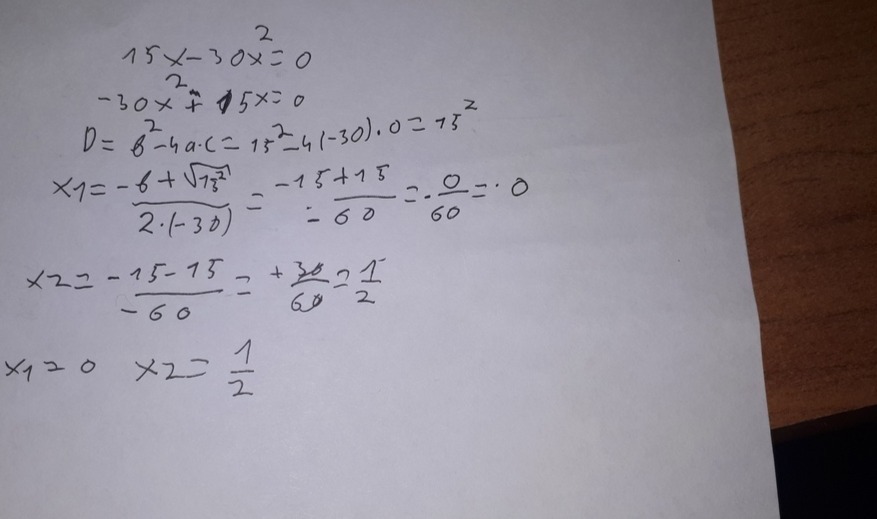 15x-30x²=0
-30x²+15x=0
D= b²-4a·c= 15²-4(-30)·0=15²
x1= -b+√15² / 2·(-30) = -15+15 / -60 = -0/60 = 0
x2= -15-15 / -60 = +30/60 = 1/2
x1=0 x2= 1/2